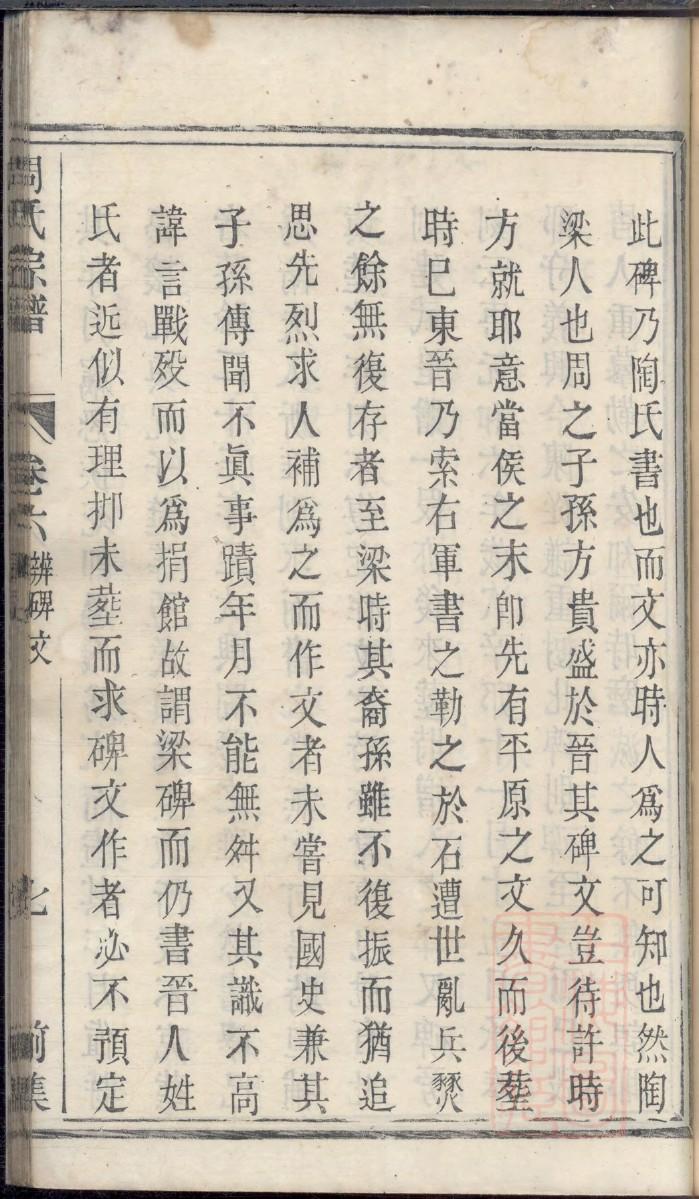 此碑乃陶氏書也而文亦時人爲之可知也然陶
梁人也周之子孫方貴盛於晉其碑文豈待許時
方就耶意當侯之末卽先有平原之文久而後塟
時巳東晉乃索右軍書之勒之於石遭世亂兵燹
之餘無復存者至梁時其裔孫雖不復振而猶追
思先烈求人補爲之而作文者未嘗見國史兼其
子孫傳聞不眞事蹟年月不能無舛又其識不高
諱言戰歿而以爲捐館故謂梁碑而仍書晉人姓
氏者近似有理抑未塟而求碑文作者必不預定
周氏宗譜
卷六 辨碑文
七
前集